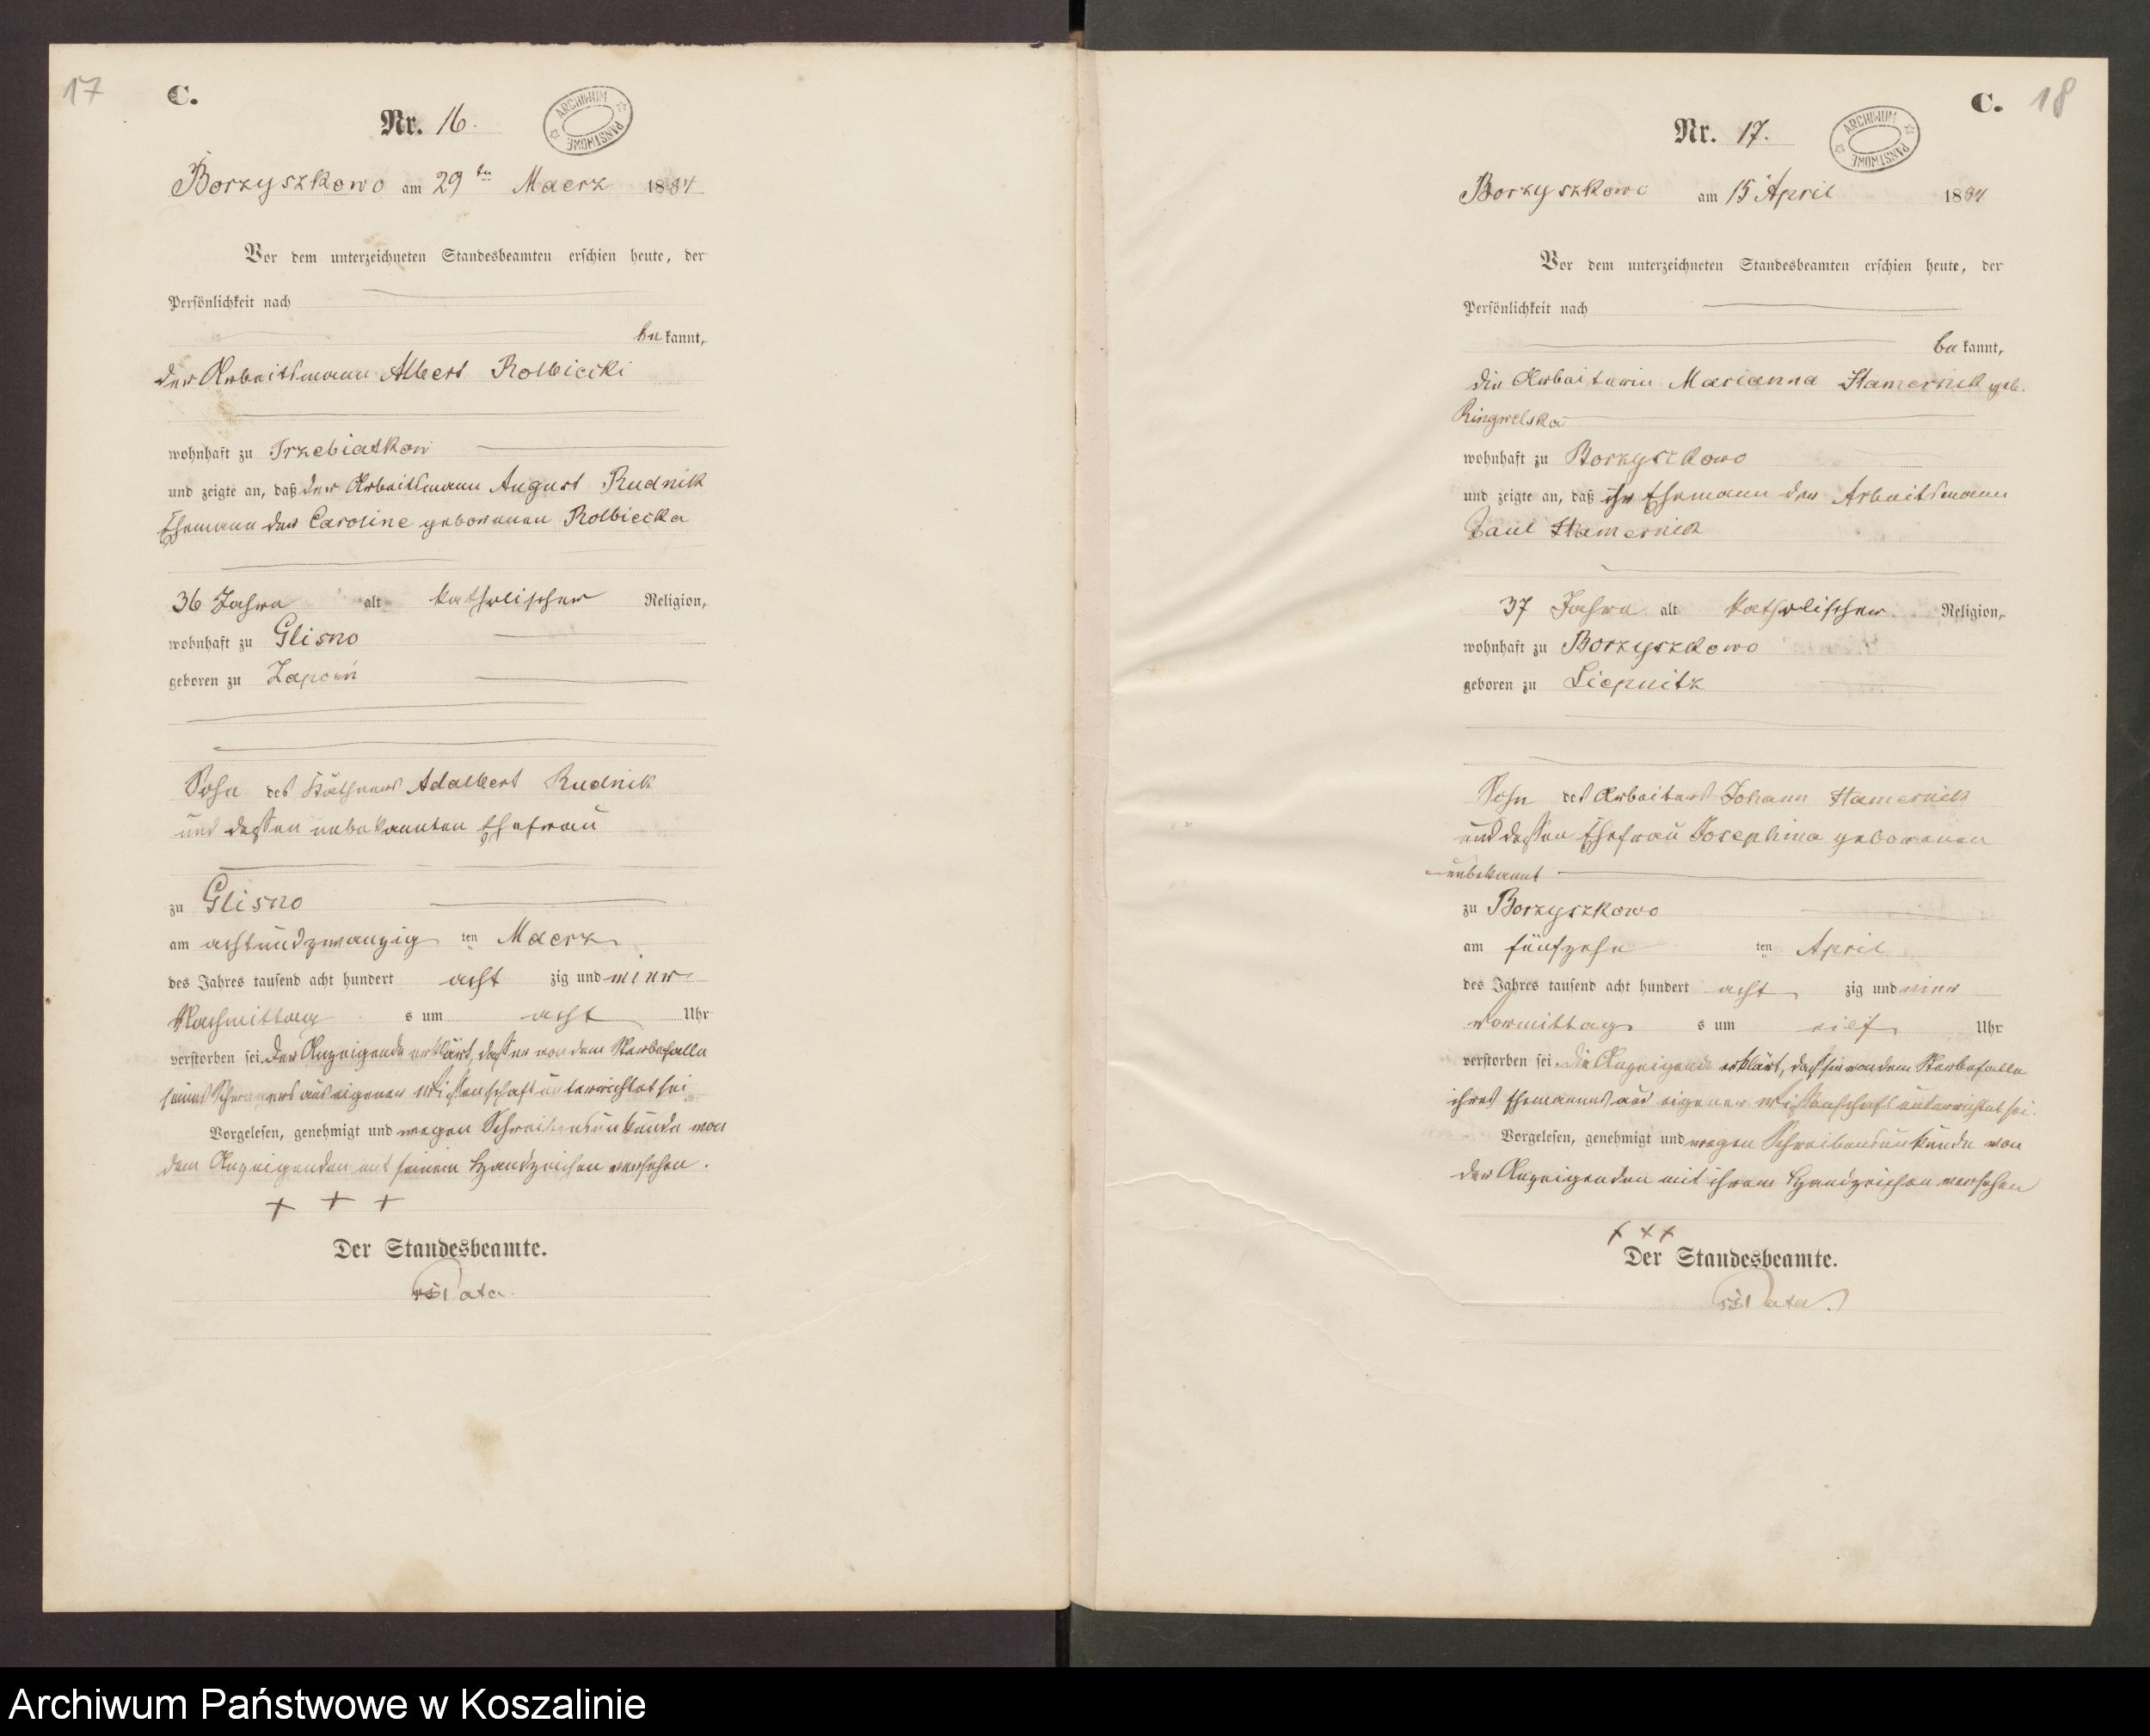 17
C.
Nr. 16.
ARCHIWUM PAŃSTWOWE
Borzyszkowo am 29ten Maerz 1884
Vor dem unterzeichneten Standesbeamten erschien heute, der
Persönlichkeit nach
bekannt,
der Arbeitsmann Albert Rolbiecki
wohnhaft zu Trzebiatkow
und zeigte an, daß der Arbeitsmann August Rudnik
Ehemann der Caroline geborenen Rolbiecka
36 Jahre alt katholischer Religion,
wohnhaft zu Glisno
geboren zu Zapceń
Sohn des Käthners Adalbert Rudnik
und dessen unbekannten Ehefrau
zu Glisno
am achtundzwanzig ten Maerz
des Jahres tausend acht hundert acht zig und vier
Nachmittag s um acht Uhr
verstorben sei. Der Anzeigende erklärt, dasser von dem Sterbefalle
seines Schwagers aus eigener Wissenschaft unterrichtet sei
Vorgelesen, genehmigt und wegen Schreibensunkunde von
dem Anzeigenden mit seinem Handzeichen versehen.
+ + +
Der Standesbeamte.
C. 18
Nr. 17.
ARCHIWUM PAŃSTWOWE
Borzyszkowo am 15 April 1884
Vor dem unterzeichneten Standesbeamten erschien heute, der
Persönlichkeit nach
bekannt,
die Arbeiterin Marianna Hamernik geb.
Ringwelska
wohnhaft zu Borzyszkowo
und zeigte an, daß ihr Ehemann der Arbeitsmann
Paul Hamernik
37 Jahre alt katholischer Religion,
wohnhaft zu Borzyszkowo
geboren zu Liepnitz
Sohn des Arbeiters Johann Hamernik
und dessen Ehefrau Josephina geborenen
unbekannt
zu Borzyszkowo
am fünfzehn ten April
des Jahres tausend acht hundert acht zig und vier
Vormittag s um eilf Uhr
verstorben sei. Die Anzeigende erklärt, daß sie von dem Sterbefalle
ihres Ehemannes aus eigener Wissenschaft unterrichtet sei.
Vorgelesen, genehmigt und wegen Schreibensunkunde von
der Anzeigenden mit ihrem Handzeichen versehen
+ + +
Der Standesbeamte.
Archiwum Państwowe w Koszalinie